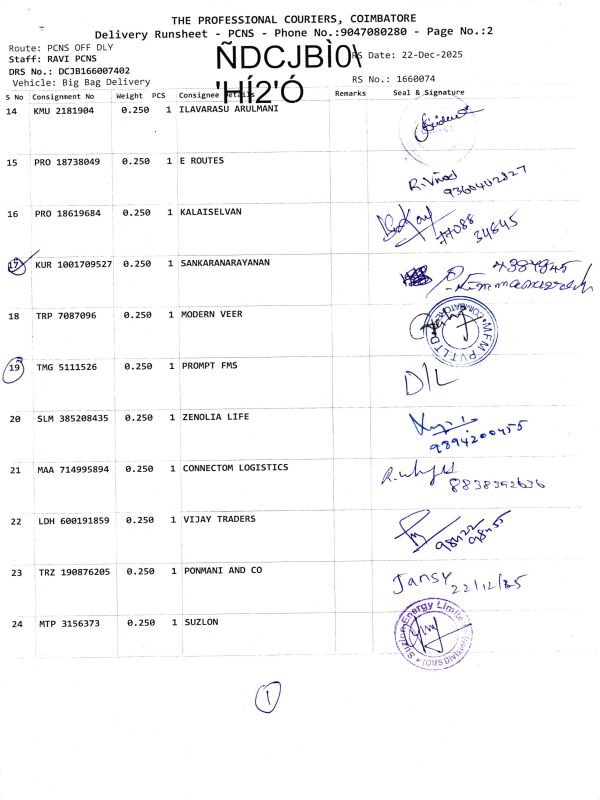 THE PROFESSIONAL COURIERS, COIMBATORE
Delivery Runsheet - PCNS - Phone No.:9047080280 - Page No.:2
Route: PCNS OFF DLY
Staff: RAVI PCNS
ÑDCJBÌ0\
RS Date: 22-Dec-2025
DRS No.: DCJB166007402
'HÍ2'Ó
RS No.: 1660074
Vehicle: Big Bag Delivery
S No Consignment No Weight PCS Consignee Details Remarks Seal & Signature
14 KMU 2181904 0.250 1 ILAVARASU ARULMANI
15 PRO 18738049 0.250 1 E ROUTES
R. Vinod
9360402827
16 PRO 18619684 0.250 1 KALAISELVAN
77088
34845
17 KUR 1001709527 0.250 1 SANKARANARAYANAN
18 TRP 7087096 0.250 1 MODERN VEER
MFM PVT LTD
COIMBATORE
19 TMG 5111526 0.250 1 PROMPT FMS
D/L
20 SLM 385208435 0.250 1 ZENOLIA LIFE
9894200455
21 MAA 714995894 0.250 1 CONNECTOM LOGISTICS
8838392636
22 LDH 600191859 0.250 1 VIJAY TRADERS
98422
98455
23 TRZ 190876205 0.250 1 PONMANI AND CO
Jansy 22/12/25
24 MTP 3156373 0.250 1 SUZLON
Suzlon Energy Limited
(OMS Division)
1